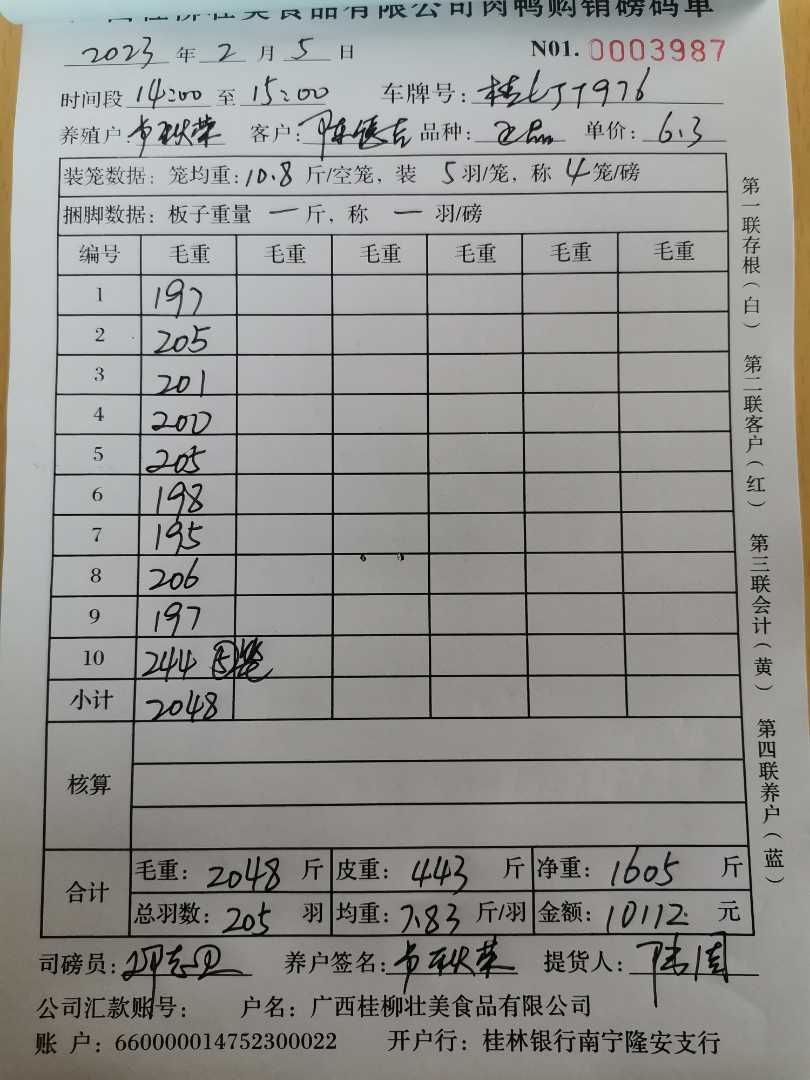 广西桂柳壮美食品有限公司肉鸭购销磅码单
2023 年 2 月 5 日 N01. 0003987
时间段 14:00 至 15:00 车牌号:
养殖户: 韦秋荣 客户: 品种: 正品 单价: 6.3
装笼数据: 笼均重: 10.8 斤/空笼, 装 5 羽/笼, 称 4 笼/磅
捆脚数据: 板子重量 一 斤, 称 一 羽/磅
编号 毛重 毛重 毛重 毛重 毛重 毛重
1 197
2 205
3 201
4 200
5 205
6 198
7 195
8 206
9 197
10 244 ⑤笼
小计 2048
核算
合计 毛重: 2048 斤 皮重: 443 斤 净重: 1605 斤
总羽数: 205 羽 均重: 7.83 斤/羽 金额: 10112 元
司磅员: 养户签名: 韦秋荣 提货人:
公司汇款账号: 户名: 广西桂柳壮美食品有限公司
账 户: 660000014752300022 开户行: 桂林银行南宁隆安支行
第一联存根(白) 第二联客户(红) 第三联会计(黄) 第四联养户(蓝)